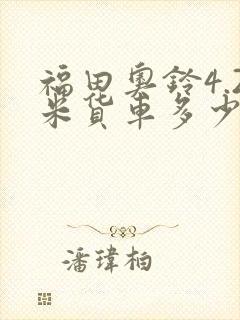 福田奥铃4.2
米货车多少
潘瑋柏